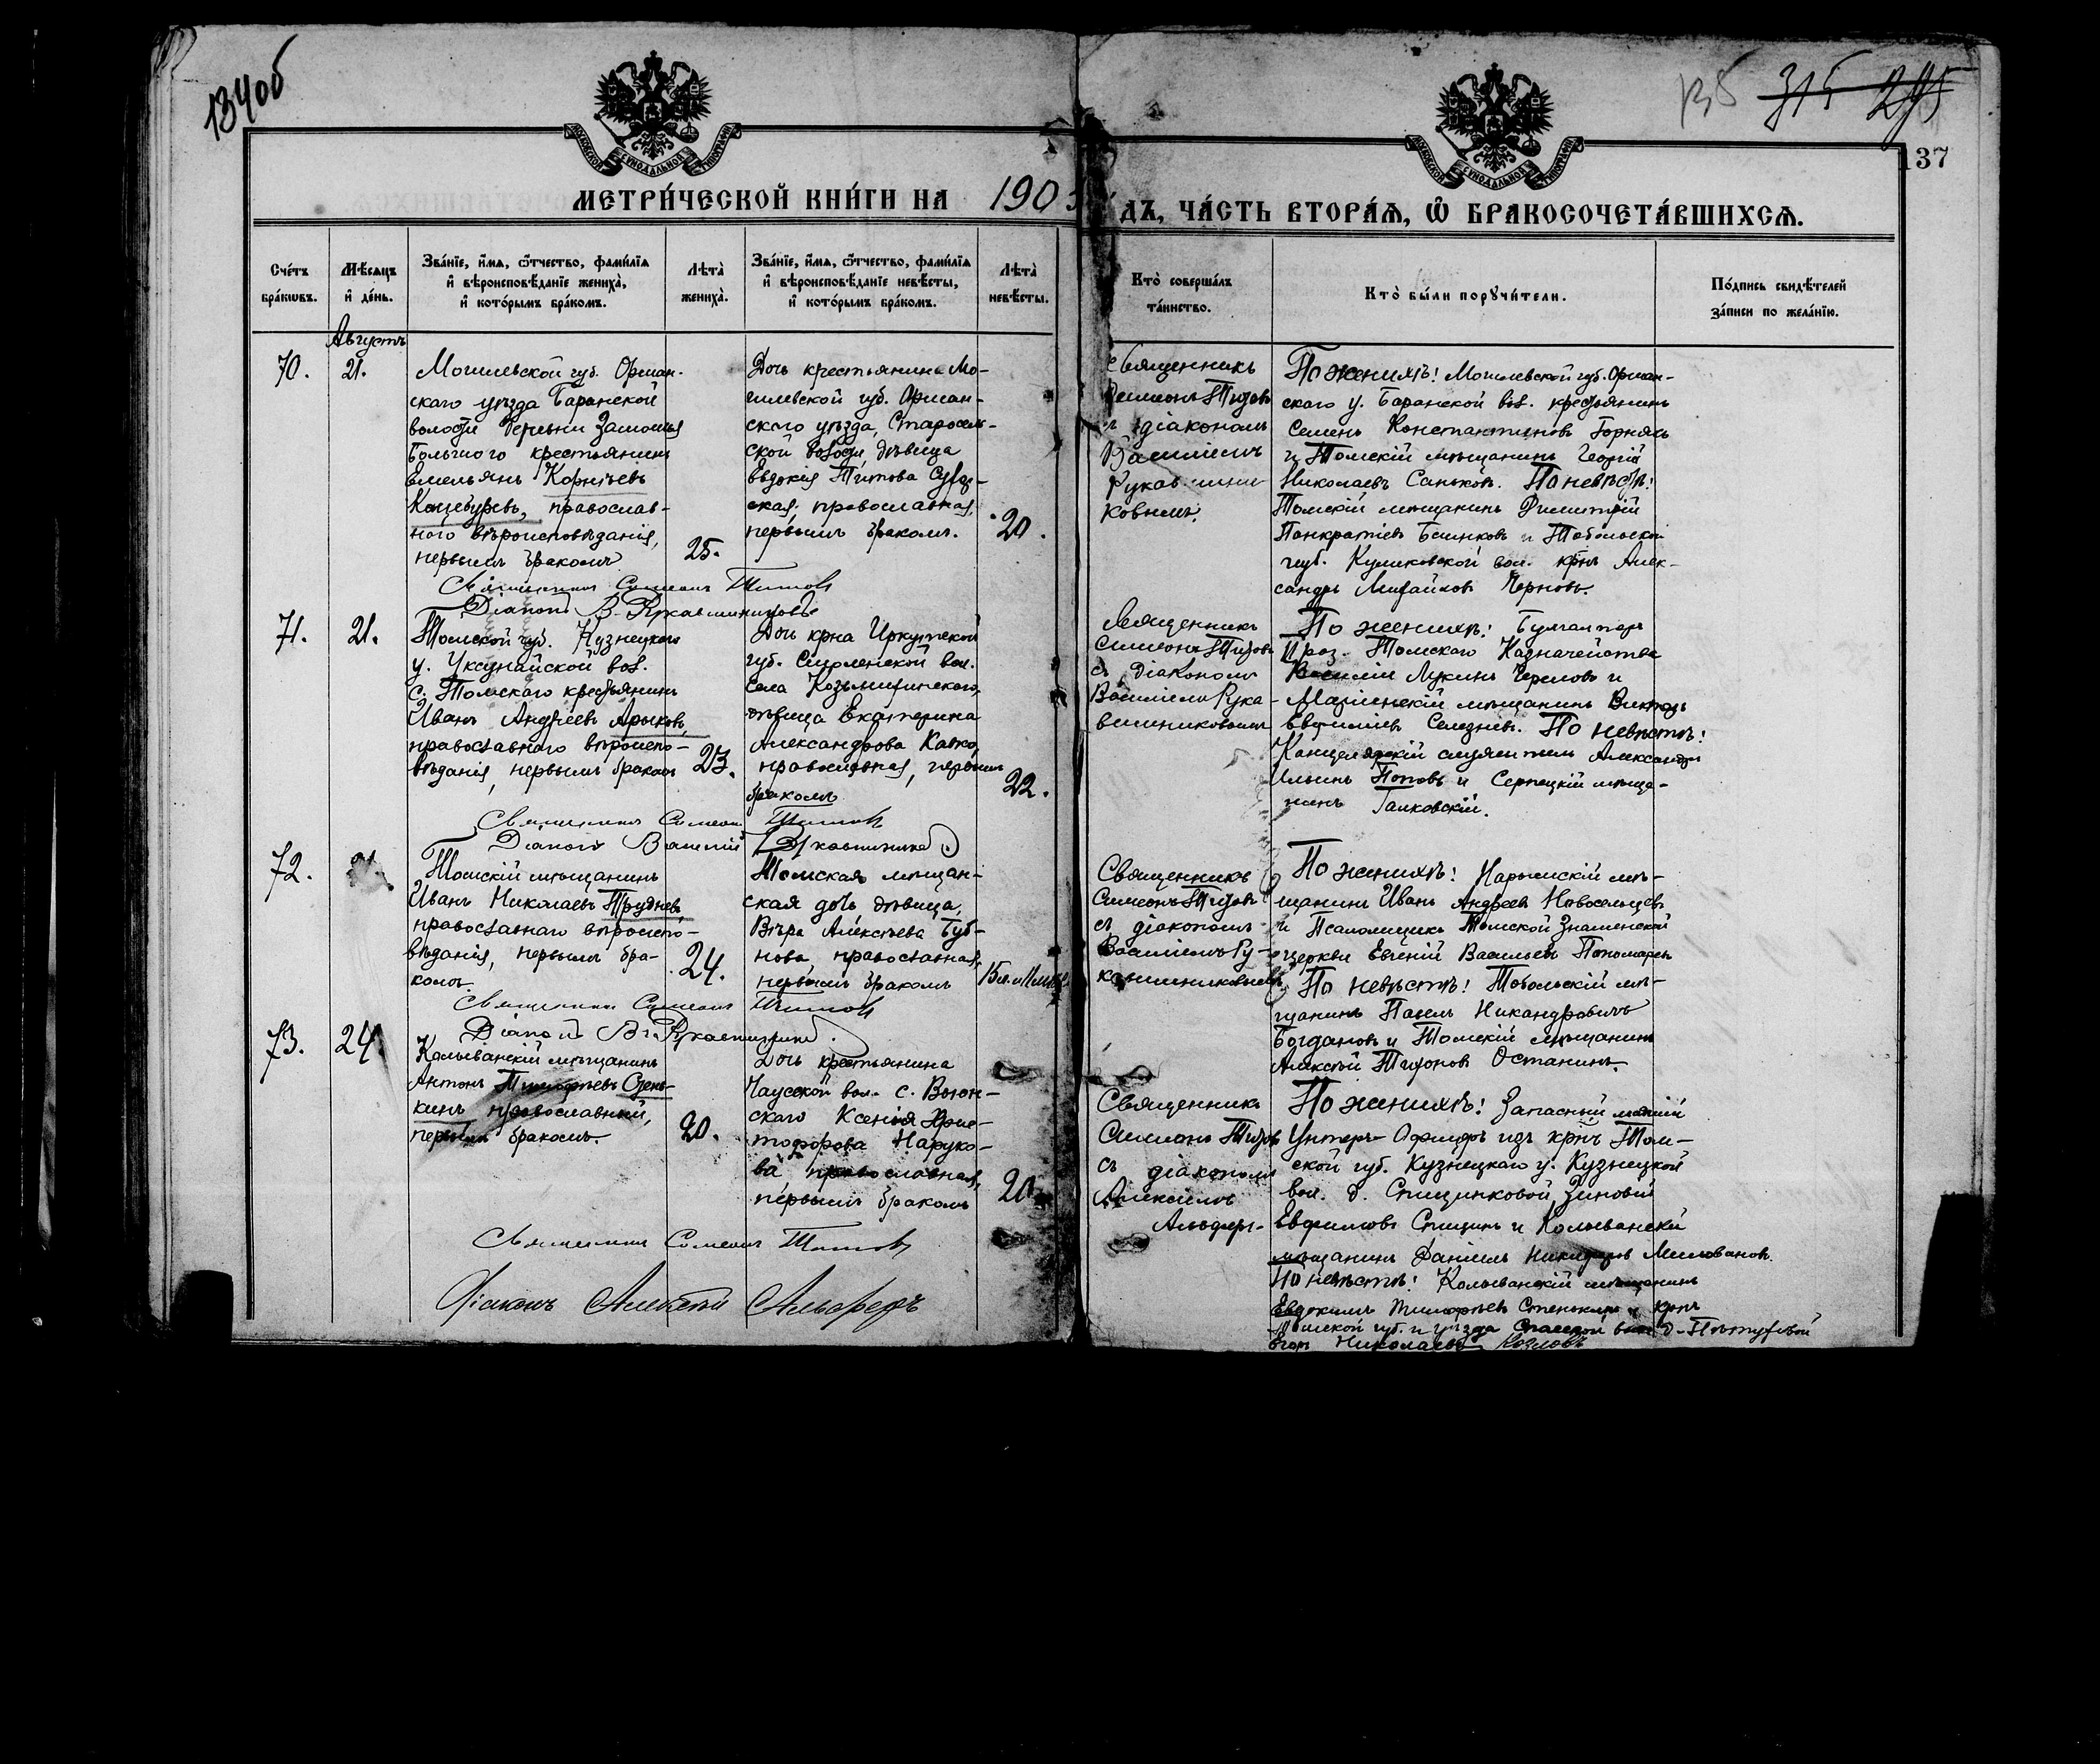 134об
135 315 295
137
МОСКОВСКОЙ СѴНОДАЛЬНОЙ ТИПОГРАФІИ
МОСКОВСКОЙ СѴНОДАЛЬНОЙ ТИПОГРАФІИ
МЕТРИ́ЧЕСКОЙ КНИ́ГИ НА 190
ДЪ, ЧА́СТЬ ВТОРА́Ѧ, Ѽ БРАКОСОЧЕТА́ВШИХСѦ.
Сче́тъ
бра́кωвъ.
Мѣ́сѧцъ
и҆ де́нь.
Зва́нїе, и҆́мѧ, ѻ҆́тчество, фами́лїѧ
и҆ вѣроисповѣ́данїе жениха̀,
и҆ кото́рымъ бра́комъ.
Лѣта̀
жениха̀.
Зва́нїе, и҆́мѧ, ѻ҆́тчество, фами́лїѧ
и҆ вѣроисповѣ́данїе невѣ́сты,
и҆ кото́рымъ бра́комъ.
Лѣта̀
невѣ́сты.
Кто̀ соверша́лъ
та́инство.
Кто̀ бы́ли порꙋчи́тели.
По́дпись свидѣ́телей
за́писи по жела́нїю.
Августъ
70.
21.
Могилевской губ. Оршан-
скаго уѣзда Баранской
волости деревни Замошья
Большого крестьянинъ
Емельянъ Корнѣевъ
православ-
наго вѣроисповѣданія,
первымъ бракомъ
25.
Дочь крестьянина Мо-
гилевской губ. Оршан-
скаго уѣзда, Старосель-
ской волости дѣвица
Евдокія Титова
православная,
первымъ бракомъ.
20.
Священникъ
Симеонъ Титовъ
съ діакономъ
Василіемъ
Рукавишни
ковымъ.
По женихѣ: Могилевской губ. Оршан-
скаго у. Баранской вол. крестьянинъ
Семенъ Константиновъ Горнякъ
и Томскій мѣщанинъ Георгій
Николаевъ Саньковъ. По невѣстѣ:
Томскій мѣщанинъ Димитрій
Панкратіевъ и Тобольской
губ. Куликовской вол. крнъ Алек-
сандръ Михайловъ Черновъ.
Священникъ Симеонъ Титовъ
Діаконъ В. Рукавишниковъ
71.
21.
Томской губ. Кузнецкаго
у. Уксунайской вол.
с. Томскаго крестьянинъ
Иванъ Андреевъ Арыковъ,
православнаго вѣроиспо-
вѣданія, первымъ бракомъ
23.
Дочь крна Иркутской
губ. Смоленской вол.
села Козьмихинскаго,
дѣвица Екатерина
Александрова Кавко,
православная, первымъ
бракомъ
22.
Священникъ
Симеонъ Титовъ
съ діакономъ
Василіемъ Рука-
вишниковымъ
По женихѣ: Бухгалтеръ
Томскаго Казначейства
Василій Лукинъ и
Маріинскій мѣщанинъ Викторъ
Евфиміевъ Селезневъ. По невѣстѣ:
Канцелярскій служитель Александръ
Ильинъ Поповъ и мѣща-
нинъ Галковскій.
Священникъ Симеонъ Титовъ
Діаконъ Василій Рукавишниковъ
72.
21.
Томскій мѣщанинъ
Иванъ Николаевъ Трудневъ,
православнаго вѣроиспо-
вѣданія, первымъ бра-
комъ
24.
Томская мѣщан-
ская дочь дѣвица,
Вѣра Алексѣева Буб-
нова, православная,
первымъ бракомъ
Священникъ
Симеонъ Титовъ
съ діакономъ
Василіемъ Ру-
кавишниковымъ
По женихѣ: Нарымскій мѣ-
щанинъ Иванъ Андреевъ Новосельцевъ
и Псаломщикъ Томской Знаменской
церкви Евгеній Васильевъ Пономаревъ
По невѣстѣ: Тобольскій мѣ-
щанинъ Павелъ Никандровичъ
Богдановъ и Томскій мѣщанинъ
Алексѣй Тихоновъ Останинъ.
Священникъ Симеонъ Титовъ
Діаконъ В. Рукавишниковъ.
73.
24.
Колыванскій мѣщанинъ
Антонъ Тимофѣевъ Стень-
кинъ православный,
первымъ бракомъ.
20.
Дочь крестьянина
Чаусской вол. с. Вьюн-
скаго Ксенія Хрис-
тофорова Наруко-
ва православная,
первымъ бракомъ
20.
Священникъ
Симеонъ Титовъ
съ діакономъ
Алексѣемъ
По женихѣ: Запасный младшій
Унтеръ-Офицеръ изъ крнъ Том-
ской губ. Кузнецкаго у. Кузнецкой
вол. д. Зиновій
Евфимовъ и Колыванскій
мѣщанинъ Даніилъ Никифоровъ Миловановъ.
По невѣстѣ: Колыванскій мѣщанинъ
Евдокимъ Тимофѣевъ Стенькинъ и крнъ
Томской губ. и уѣзда Спасской вол. д. Пѣтуховой
Егоръ Николаевъ Козловъ
Священникъ Симеонъ Титовъ
Діаконъ Алексѣй